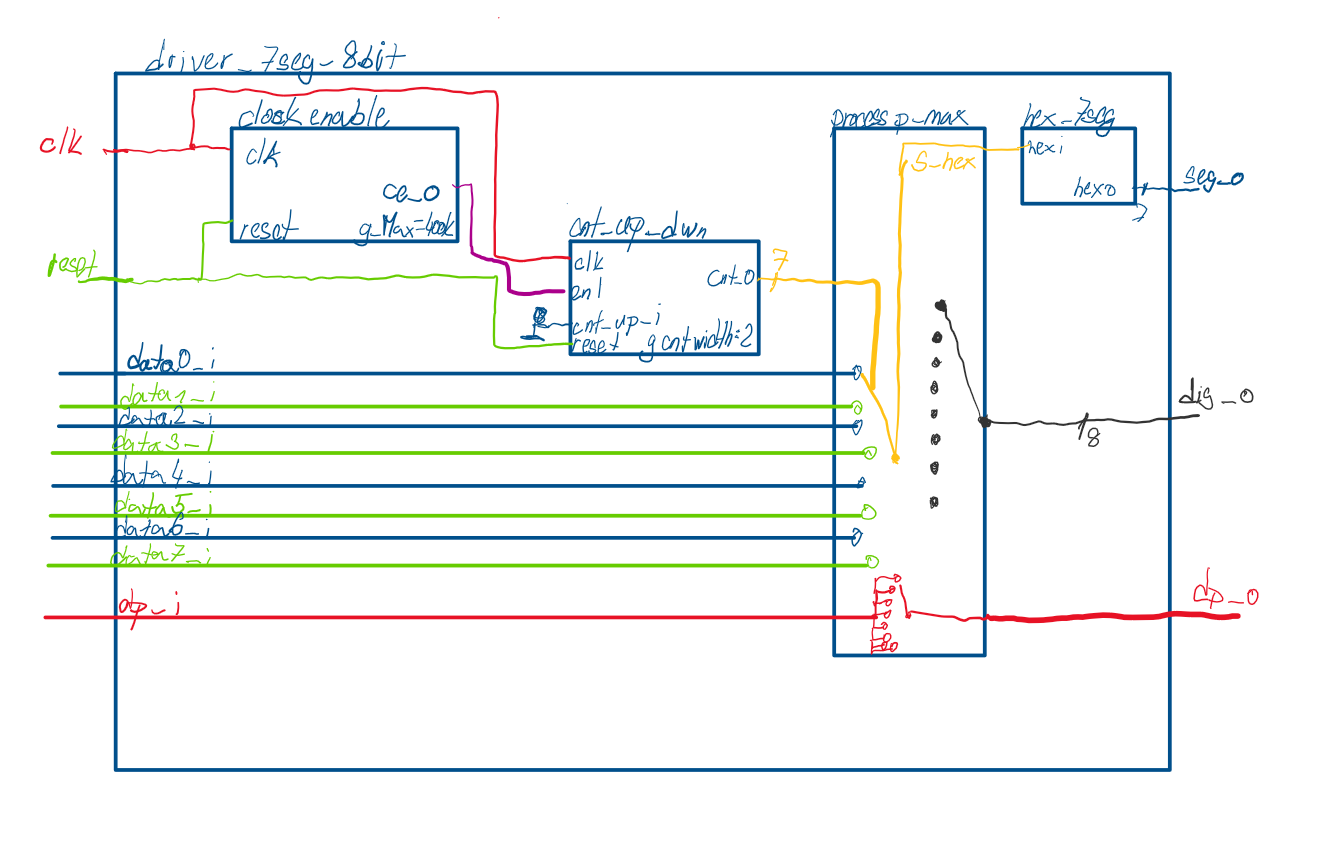 driver_7seg_8bit
clk
clock enable
clk
ce_0
reset
g_Max=400k
reset
cnt_up_dwn
clk
en1
cnt_0
7
cnt_up_i
reset
g cnt width=2
process p_max
S_hex
hex_7seg
hexi
hexo
7
seg_0
data0_i
data1_i
data2_i
data3_i
data4_i
data5_i
data6_i
data7_i
dp_i
dig_0
8
dp_0